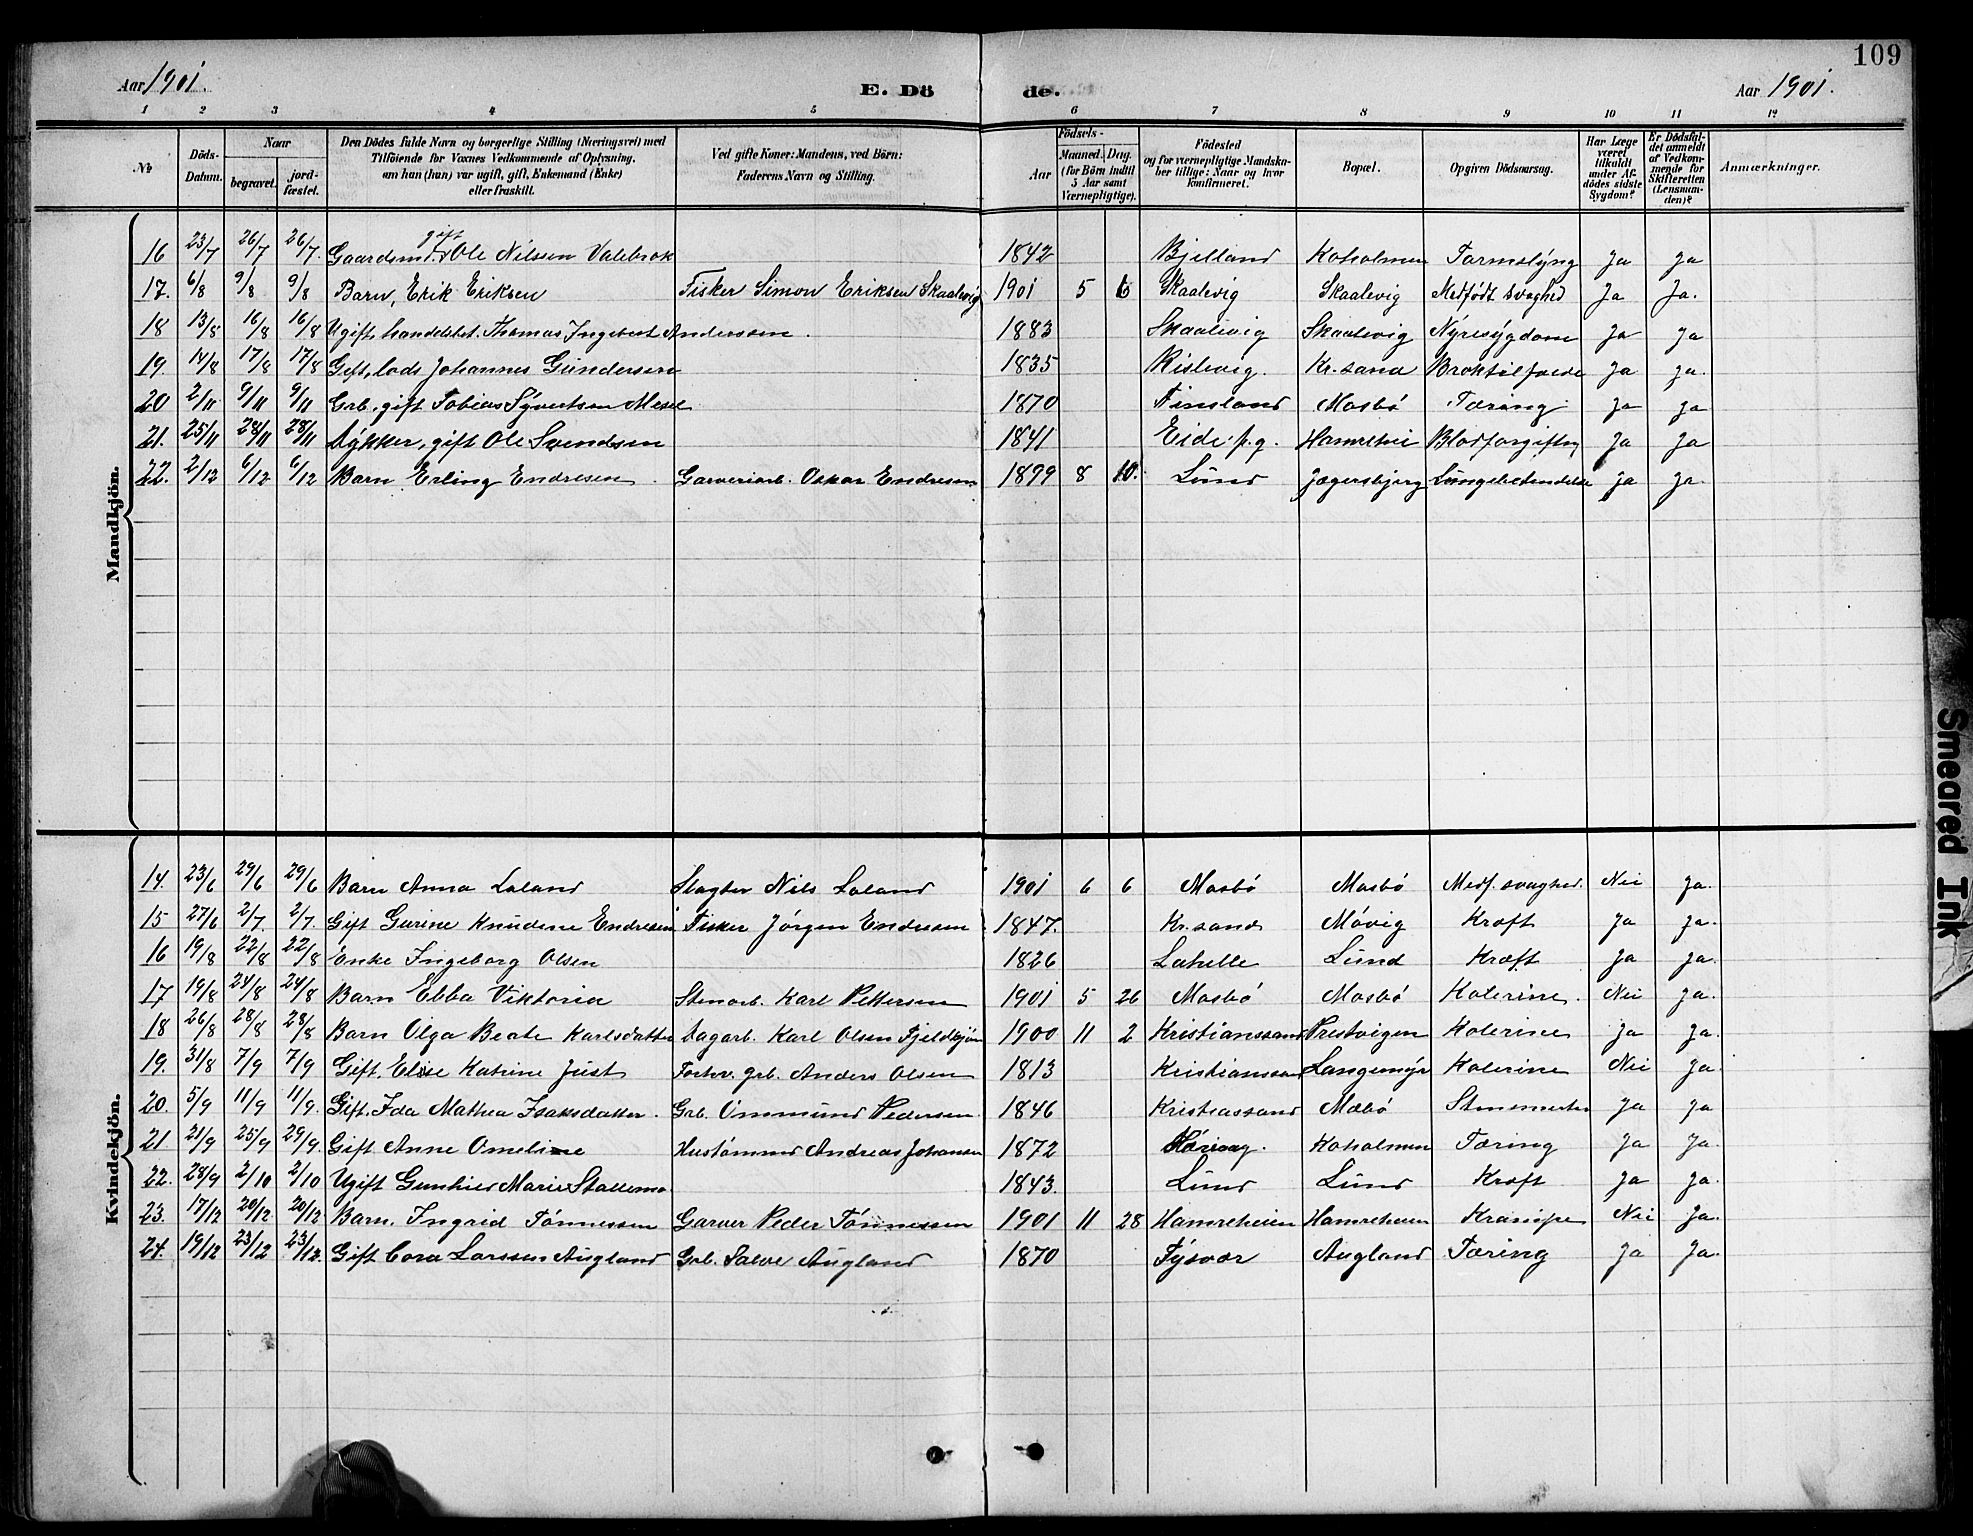 109
Aar 1901. E. Dö de. Aar 1901.
1 2 3 4 5 6 7 8 9 10 11 12
No.
Döds-Datum.
Naar
begravet.
jord-fæstet.
Den Dödes fulde Navn og borgerlige Stilling (Næringsvei) med
Tilföiende for Voxnes Vedkommende af Oplysning,
om han (hun) var ugift, gift, Enkemand (Enke)
eller fraskilt.
Ved gifte Koner: Mandens, ved Börn:
Faderens Navn og Stilling.
Födsels-
Aar
Maaned. Dag.
(for Börn indtil
5 Aar samt
Værnepligtige).
Födested
og for værnepligtige Mandska-
ber tillige: Naar og hvor
konfirmeret.
Bopæl.
Opgiven Dödsaarsag.
Har Læge
været
tilkaldt
under Af-
dödes sidste
Sygdom?
Er Dödsfal-
det anmeldt
af Vedkom-
mende for
Skifteretten
(Lensman-
den)?
Anmærkninger.
Mandkjön.
16 23/7 26/7 26/7. Gaardsmd. gift Ole Nilssen Valebrok 1842 Bjelland Koholmen Tarmslyng Ja Ja
17. 6/8 9/8 9/8 Barn, Erik Eriksen Fisker Simon Eriksen Skaalevig 1901 5 6 Skaalevig Skaalevig Medfödt svaghed Ja Ja.
18 13/8 16/8 16/8 Ugift, handelsbet. Thomas Ingebret Anderssen. 1883 Skaalevig Skaalevig Nyresygdom Ja Ja
19. 14/8 17/8 17/8 Gift, lods Johannes Gundersen 1835 Rislevig. Kr.sand Broktilfælde Ja Ja.
20 2/11 9/11 9/11 Grb. gift Tobias Syvertsen Mesel 1870 Finsland Mosbö Tæring. Ja Ja
21. 25/11 28/11 28/11 Dykker, gift Ole Svendsen 1841 Eide p.g. Hamrehei Blodforgiftng Ja Ja
22. 2/12 6/12 6/12 Barn Erling Endresen. Garveriarb. Oskar Endresen 1899 8 10. Lund Jægersbjerg Lungebetændelse Ja Ja.
Kvindekjön.
14. 23/6 29/6 29/6 Barn Anna Loland Slagter Nils Loland 1901 6 6 Mosbö Mosbö Medf. svaghed. Nei Ja.
15 27/6 2/7 2/7. Gift Gurine Knudene Endresen Fisker Jörgen Endresen 1847. Kr.sand Mövig Kræft Ja Ja.
16 19/8 22/8 22/8 Enke Ingeborg Olsen 1826 Lahelle Lund Kræft Ja Ja.
17 19/8 24/8 24/8 Barn Ebba Viktoria Stenarb. Karl Pettersen 1901 5 26 Mosbö Mosbö Kolerine. Nei Ja.
18 26/8 28/8 28/8 Barn Olga Beate Karlsdatter Dagarb. Karl Olsen Fjeldkjön 1900 11 2 Kristianssand Prestvigen Kolerine Ja Ja.
19. 31/8 7/9 7/9 Gift. Elise Katrine Just Forhv. grb. Anders Olsen 1813 Kristianssan Langemyr Kolerine Nei Ja.
20. 5/9 11/9 11/9. Gift. Ida Mathea Isaksdatter. Grb. Ommund Pedersen 1846 Kristiassand Mæbö Ja Ja.
21. 21/9 25/9 29/9. Gift Anne Omeline Hustömmer Andreas Johansen 1872 Koholmen Tæring Ja Ja
22. 28/9 2/10 2/10 Ugift Gunhild Marie Stallemo 1843. Lund Lund Kræft Ja Ja.
23. 17/12 20/12. 20/12 Barn. Ingrid Tönnessen Garver Peder Tönnessen 1901 11 28 Hamreheien Hamreheien Krampe Nei Ja.
24. 19/12 23/12 23/12. Gift Cora Larssen Augland Grb. Salve Augland 1870 Tysvær Augland Tæring Ja Ja.
Smeared Ink